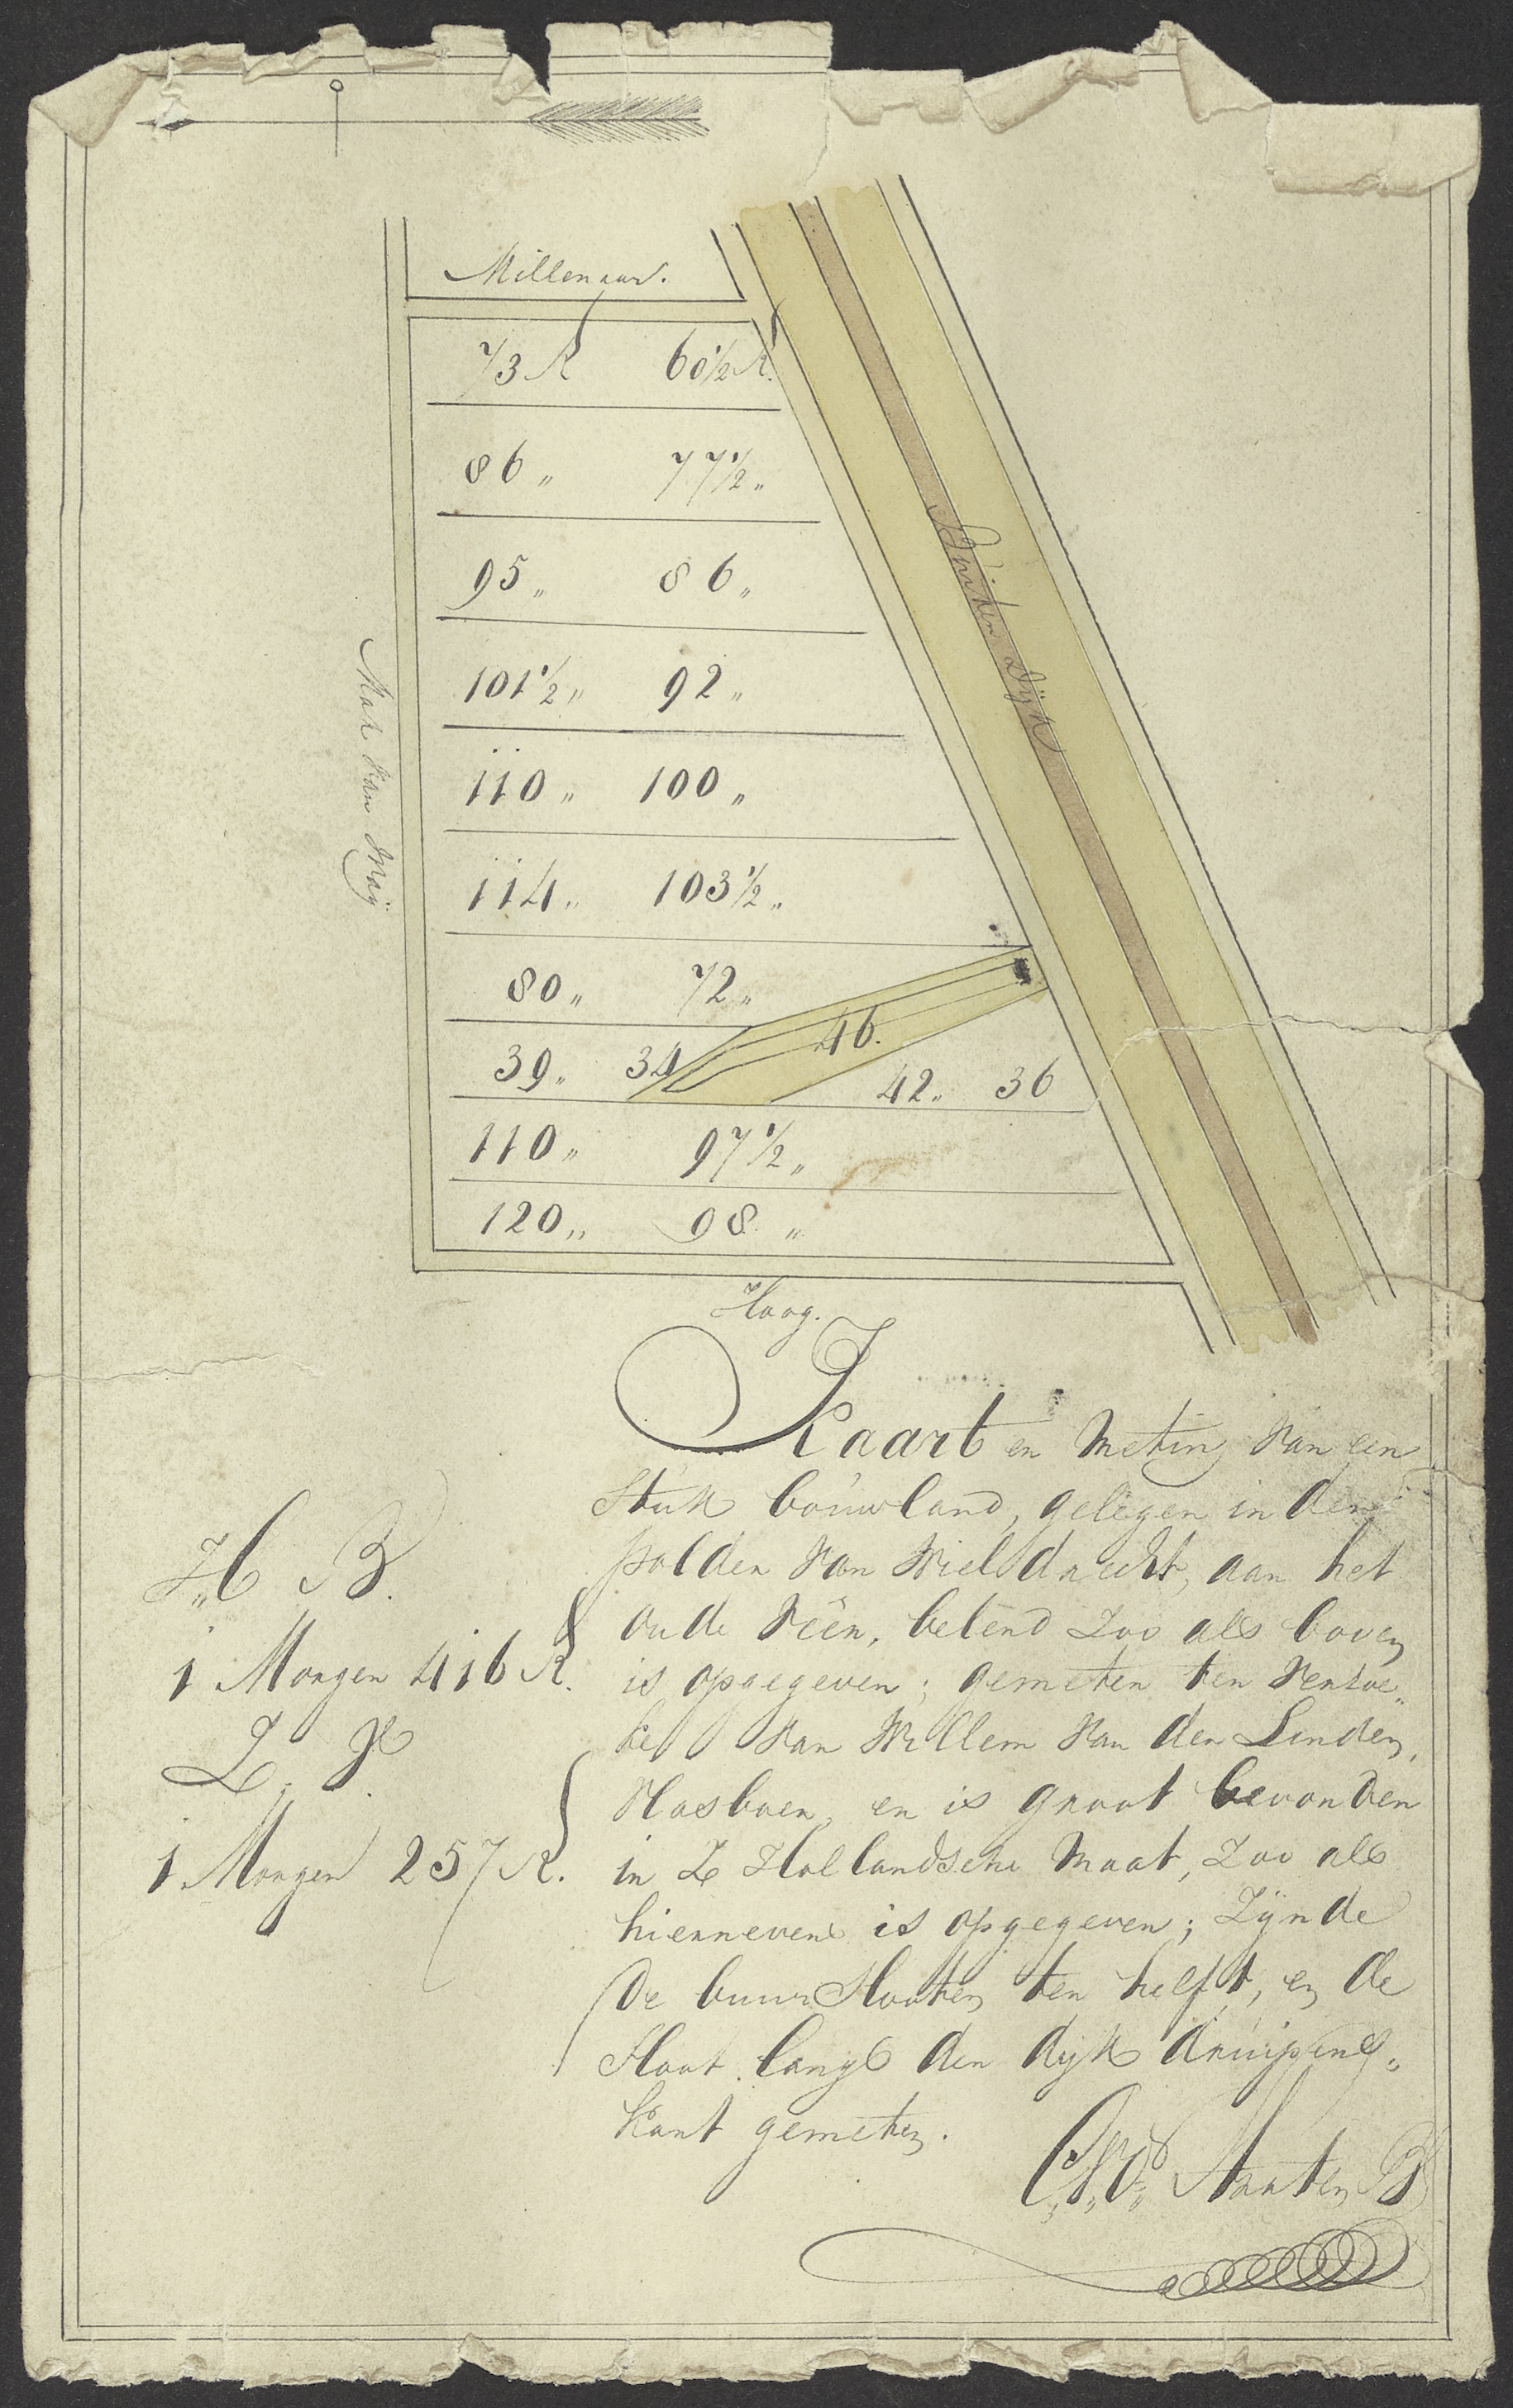 Millenaar.
73 R 60½ R.
86 „ 77½ „
95 „ 86 „
101½ „ 92 „
110 „ 100 „
114 „ 103½ „
80 „ 72 „
39 „ 34
46.
42 „ 36
110 „ 97½ „
120 „ 98 „
Buiten Dijk
van Maÿ
Hoog.
Kaart en meting van een
Stuk bouwland, gelegen in den
polder van Wieldrecht, aan het
oude Veen, belend zoo als boven
is opgegeven; gemeten ten verzoe„
ke van Willem van den Linden,
Vlasboer, en is groot bevonden
in Z Hollandsche maat, zoo als
hiernevens is opgegeven; Zÿnde
de buur Slooten ten helft, en de
Sloot langs den dijk druipend„
kant gemeten.
H„ B.
1 Morgen 416 R.
Z.
1 Morgen 257 R.